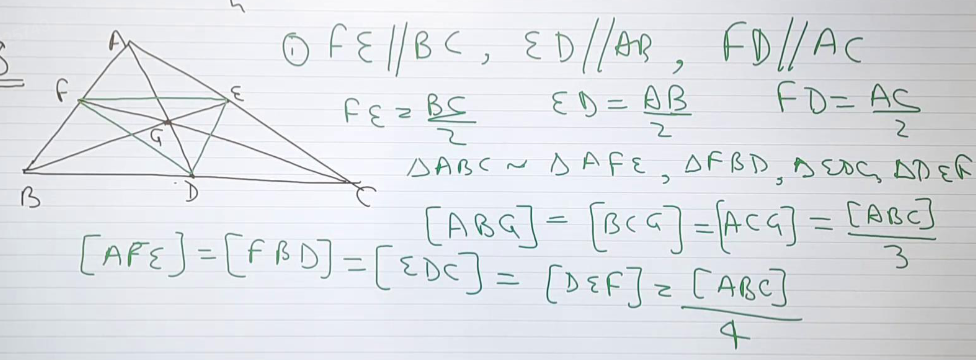 ① FE//BC, ED//AB, FD//AC
FE = BC/2 ED = AB/2 FD = AC/2
△ABC ~ △AFE, △FBD, △EDC, △DEF
[ABG] = [BCG] = [ACG] = [ABC]/3
[AFE] = [FBD] = [EDC] = [DEF] = [ABC]/4
A
F
E
G
B
D
C